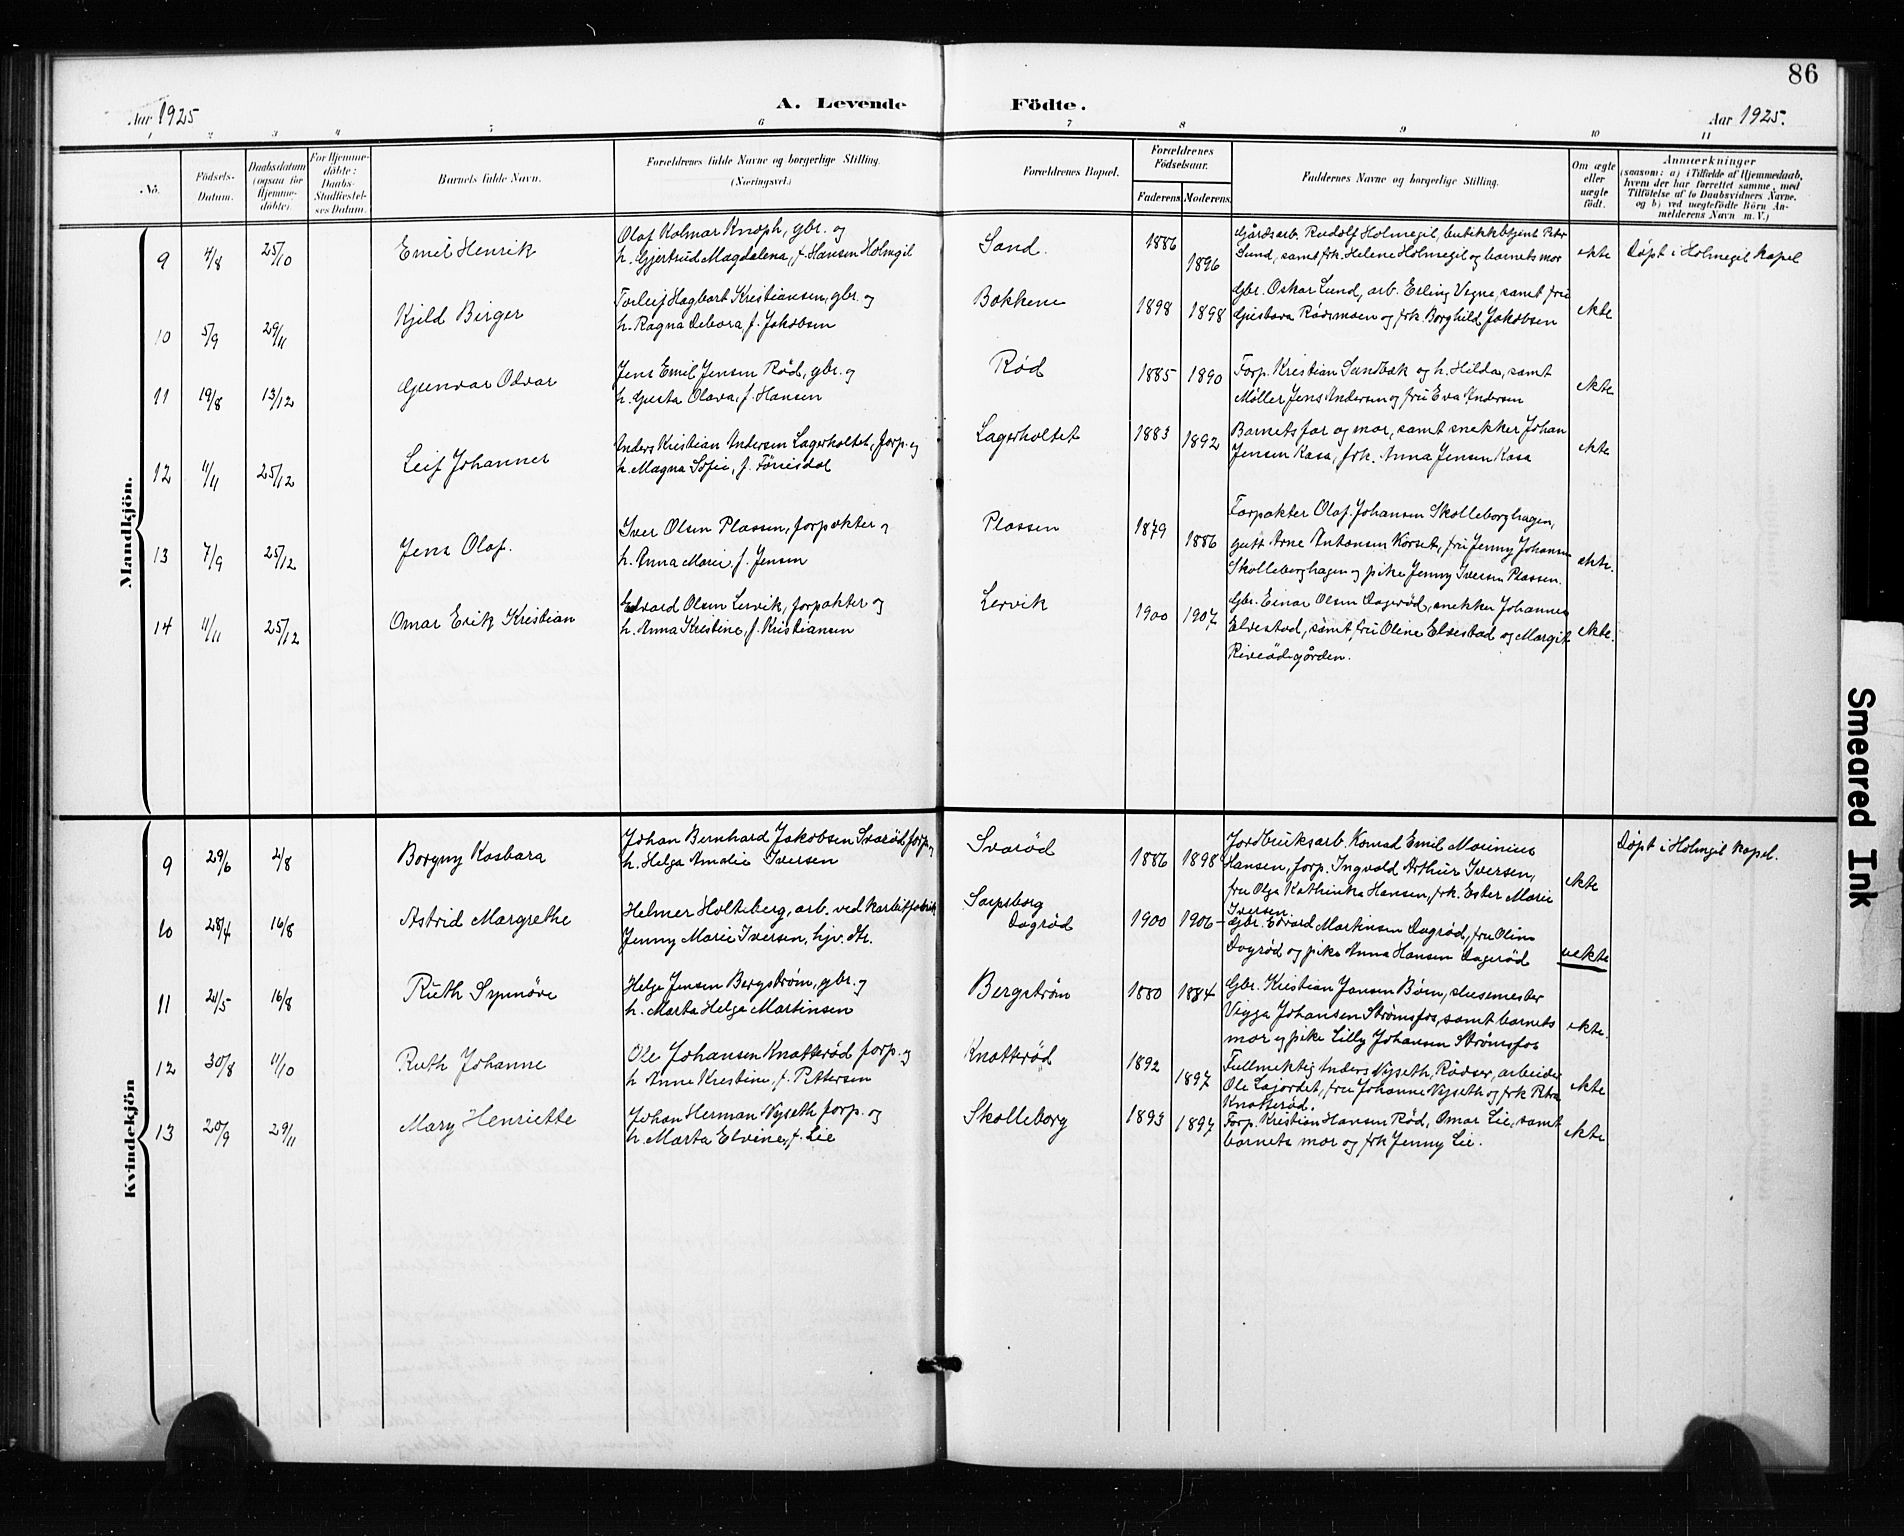 86
Aar 1925
A. Levende
Fødte.
Aar 1925.
1 2 3 4 5 6 7 8 9 10 11
No.
Fødsels-
Datum.
Daabsdatum
(ogsaa for
Hjemme-
døbte).
For Hjemme-
døbte:
Daabs-
Stadfæstel-
ses Datum.
Barnets fulde Navn.
Forældrenes fulde Navne og borgerlige Stilling.
(Næringsvei.)
Forældrenes Bopæl.
Forældrenes
Fødselsaar.
Faderens
Moderens
Faddernes Navne og borgerlige Stilling.
Om ægte
eller
uægte
født.
Anmærkninger
(saasom: a) i Tilfælde af Hjemmedaab,
hvem der har forrettet samme, med
Tilføielse af to Daabsvidners Navne.
og b) ved uægtefødte Börn An-
melderens Navn m. V.)
Mandkjön.
9 4/8 25/10 Emil Henrik
Olaf Kolmar Knoph, gbr. og
h. Gjertrud Magdalena, f. Hansen Holmgil
Sand. 1886 1896
Gårdsarb. Rudolf Holmegil, butikkbtjent Peter
Lund, samt frk. Helene Holmegil og barnets mor
ekte
Døpt i Holmegil Kapel
10 5/9 29/11 Kjeld Birger
Torleif Hagbart Kristiansen, gbr. og
h. Ragna Debora, f. Jakobsen
Bakkene 1898 1898
Gbr. Oskar Lund, arb. Erling Vigne, samt fru
Gustava Rødsmoen og frk. Borghild Jakobsen
ekte
11 19/8 13/12 Gunvar Odvar
Jens Emil Jensen Rød, gbr. og
h. Gusta Olava, f. Hansen
Rød 1885 1890
Forp. Kristian Sundbæk og h. Hilda, samt
Møller Jens Andersen og fru Eva Andersen
ekte
12 11/11 25/12 Leif Johannes
Anders Kristian Andersen Lagerholtet, forp. og
h. Magna Sofie, f. Tørrisdal
Lagerholtet 1883 1892
Barnets far og mor, samt snekker Johan
Jensen Kasa, frk. Anna Jensen Kasa
ekte
13 7/9 25/12 Jens Olaf.
Iver Olsen Plassen, forpakter og
h. Anna Marie, f. Jensen
Plassen 1879 1886
Forpakter Olaf Johansen Skolleborghagen,
gutt Arne Antonsen Korset, fru Jenny Johansen
Skolleborghagen og pike Jenny Iversen Plassen.
ekte.
14 11/11 25/12 Omar Erik Kristian
Edvard Olsen Lervik, forpakter og
h. Anna Kristine, f. Kristiansen
Lervik 1900 1907
Gbr. Einar Olsen Dagrød, snekker Johannes
Elvestad, samt fru Oline Elvestad og Margit
Riverødgården.
ekte.
Kvindekjön
9 29/6 2/8 Borgny Kasbara
Johan Bernhard Jakobsen Svarød forp. og
h. Helga Amalie Iversen
Svarød 1886 1898
Jordbruksarb. Konrad Emil Marinius
Hansen, forp. Ingvald Arthur Iversen,
fru Olga Kathinka Hansen, frk. Ester Marie
Iversen
ekte
Døpt i Holmgil Kapel.
10 28/4 16/8 Astrid Margrethe
Helmer Holteberg, arb. ved karbitfabrik
Jenny Marie Iversen, hjv. dtr.
Sarpsborg
Dagrød
1900 1906
Gbr. Edvard Martinsen Dagrød, fru Oline
Dagrød og pike Anna Hansen Dagrød
uekte
11 21/5 16/8 Ruth Synnøve
Helge Jensen Bergstrøm, gbr. og
h. Marta Helga Martinsen
Bergstrøm 1880 1884
Gbr. Kristian Jansen Børn, slusemester
Viggo Johansen Strømsfos, samt barnets
mor og pike Lilly Johansen Strømsfos
ekte.
12 30/8 11/10 Ruth Johanne
Ole Johansen Knatterød forp. og
h. Anne Kristine, f. Pettersen
Knatterød 1892 1897
Fullmektig Anders Nyseth, Rødser, arbeider
Ole Lajordet, fru Johanne Nyseth og frk Petra
Knatterød.
ekte
13 20/9 29/11 Mary Henriette
Johan Herman Nyseth forp. og
h. Marta Elvine, f. Lie
Skolleborg 1893 1897
Forp. Kristian Hansen Rød, Omar Lie, samt
barnets mor og frk Jenny Lie.
ekte
Smeared Ink